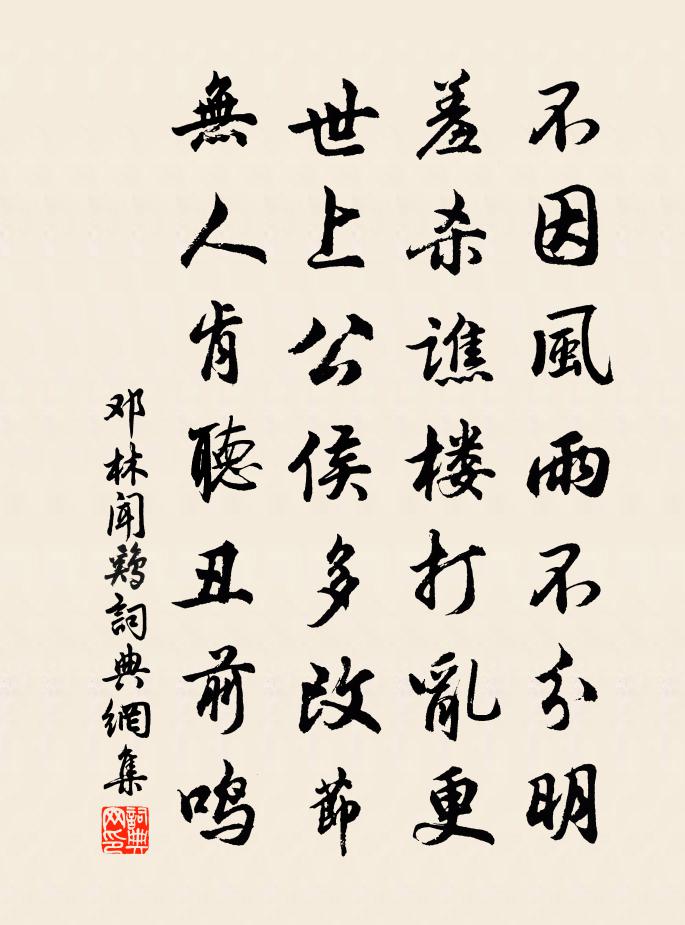 不因風雨不分明
羞杀譙楼打亂更
世上公侯多改節
無人肯聽丑前鸣
邓林闻鷄詞典網集
詞典网印